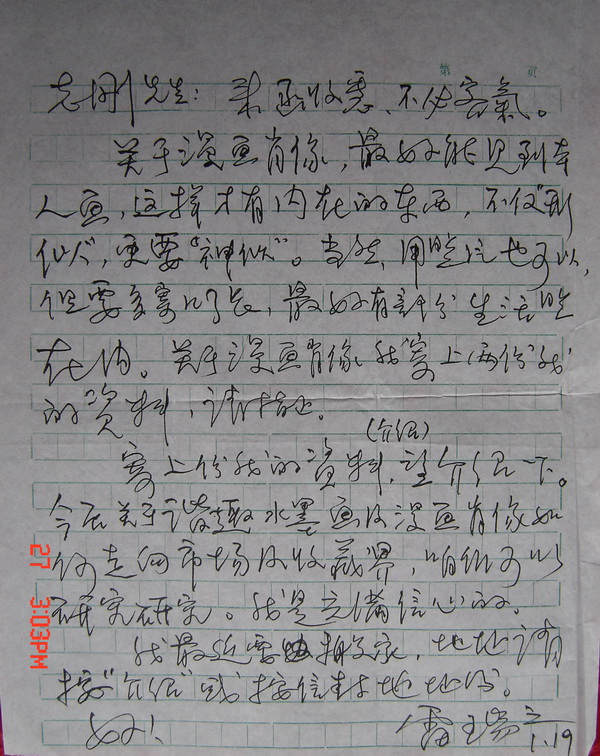 第 页
志刚先生：来函收悉、不必客氣。
关于漫画肖像，最好能见到本
人画，这样才有内在的东西，不仅“形
似”，更要“神似”。当然，用照片也可以，
但要多寄几张，最好有部分生活照
在内。关于漫画肖像我寄上两份我
的资料，请指正。
(介绍)
寄上份我的资料，望介绍一下。
今后关于谐趣水墨画及漫画肖像如
何走向市场及收藏界，咱们可以
研究研究。我是充满信心的。
我最近要搬家，地址请
按“介绍”或按信封地址。
好！
雷瑞之
1.19
27 3:03PM